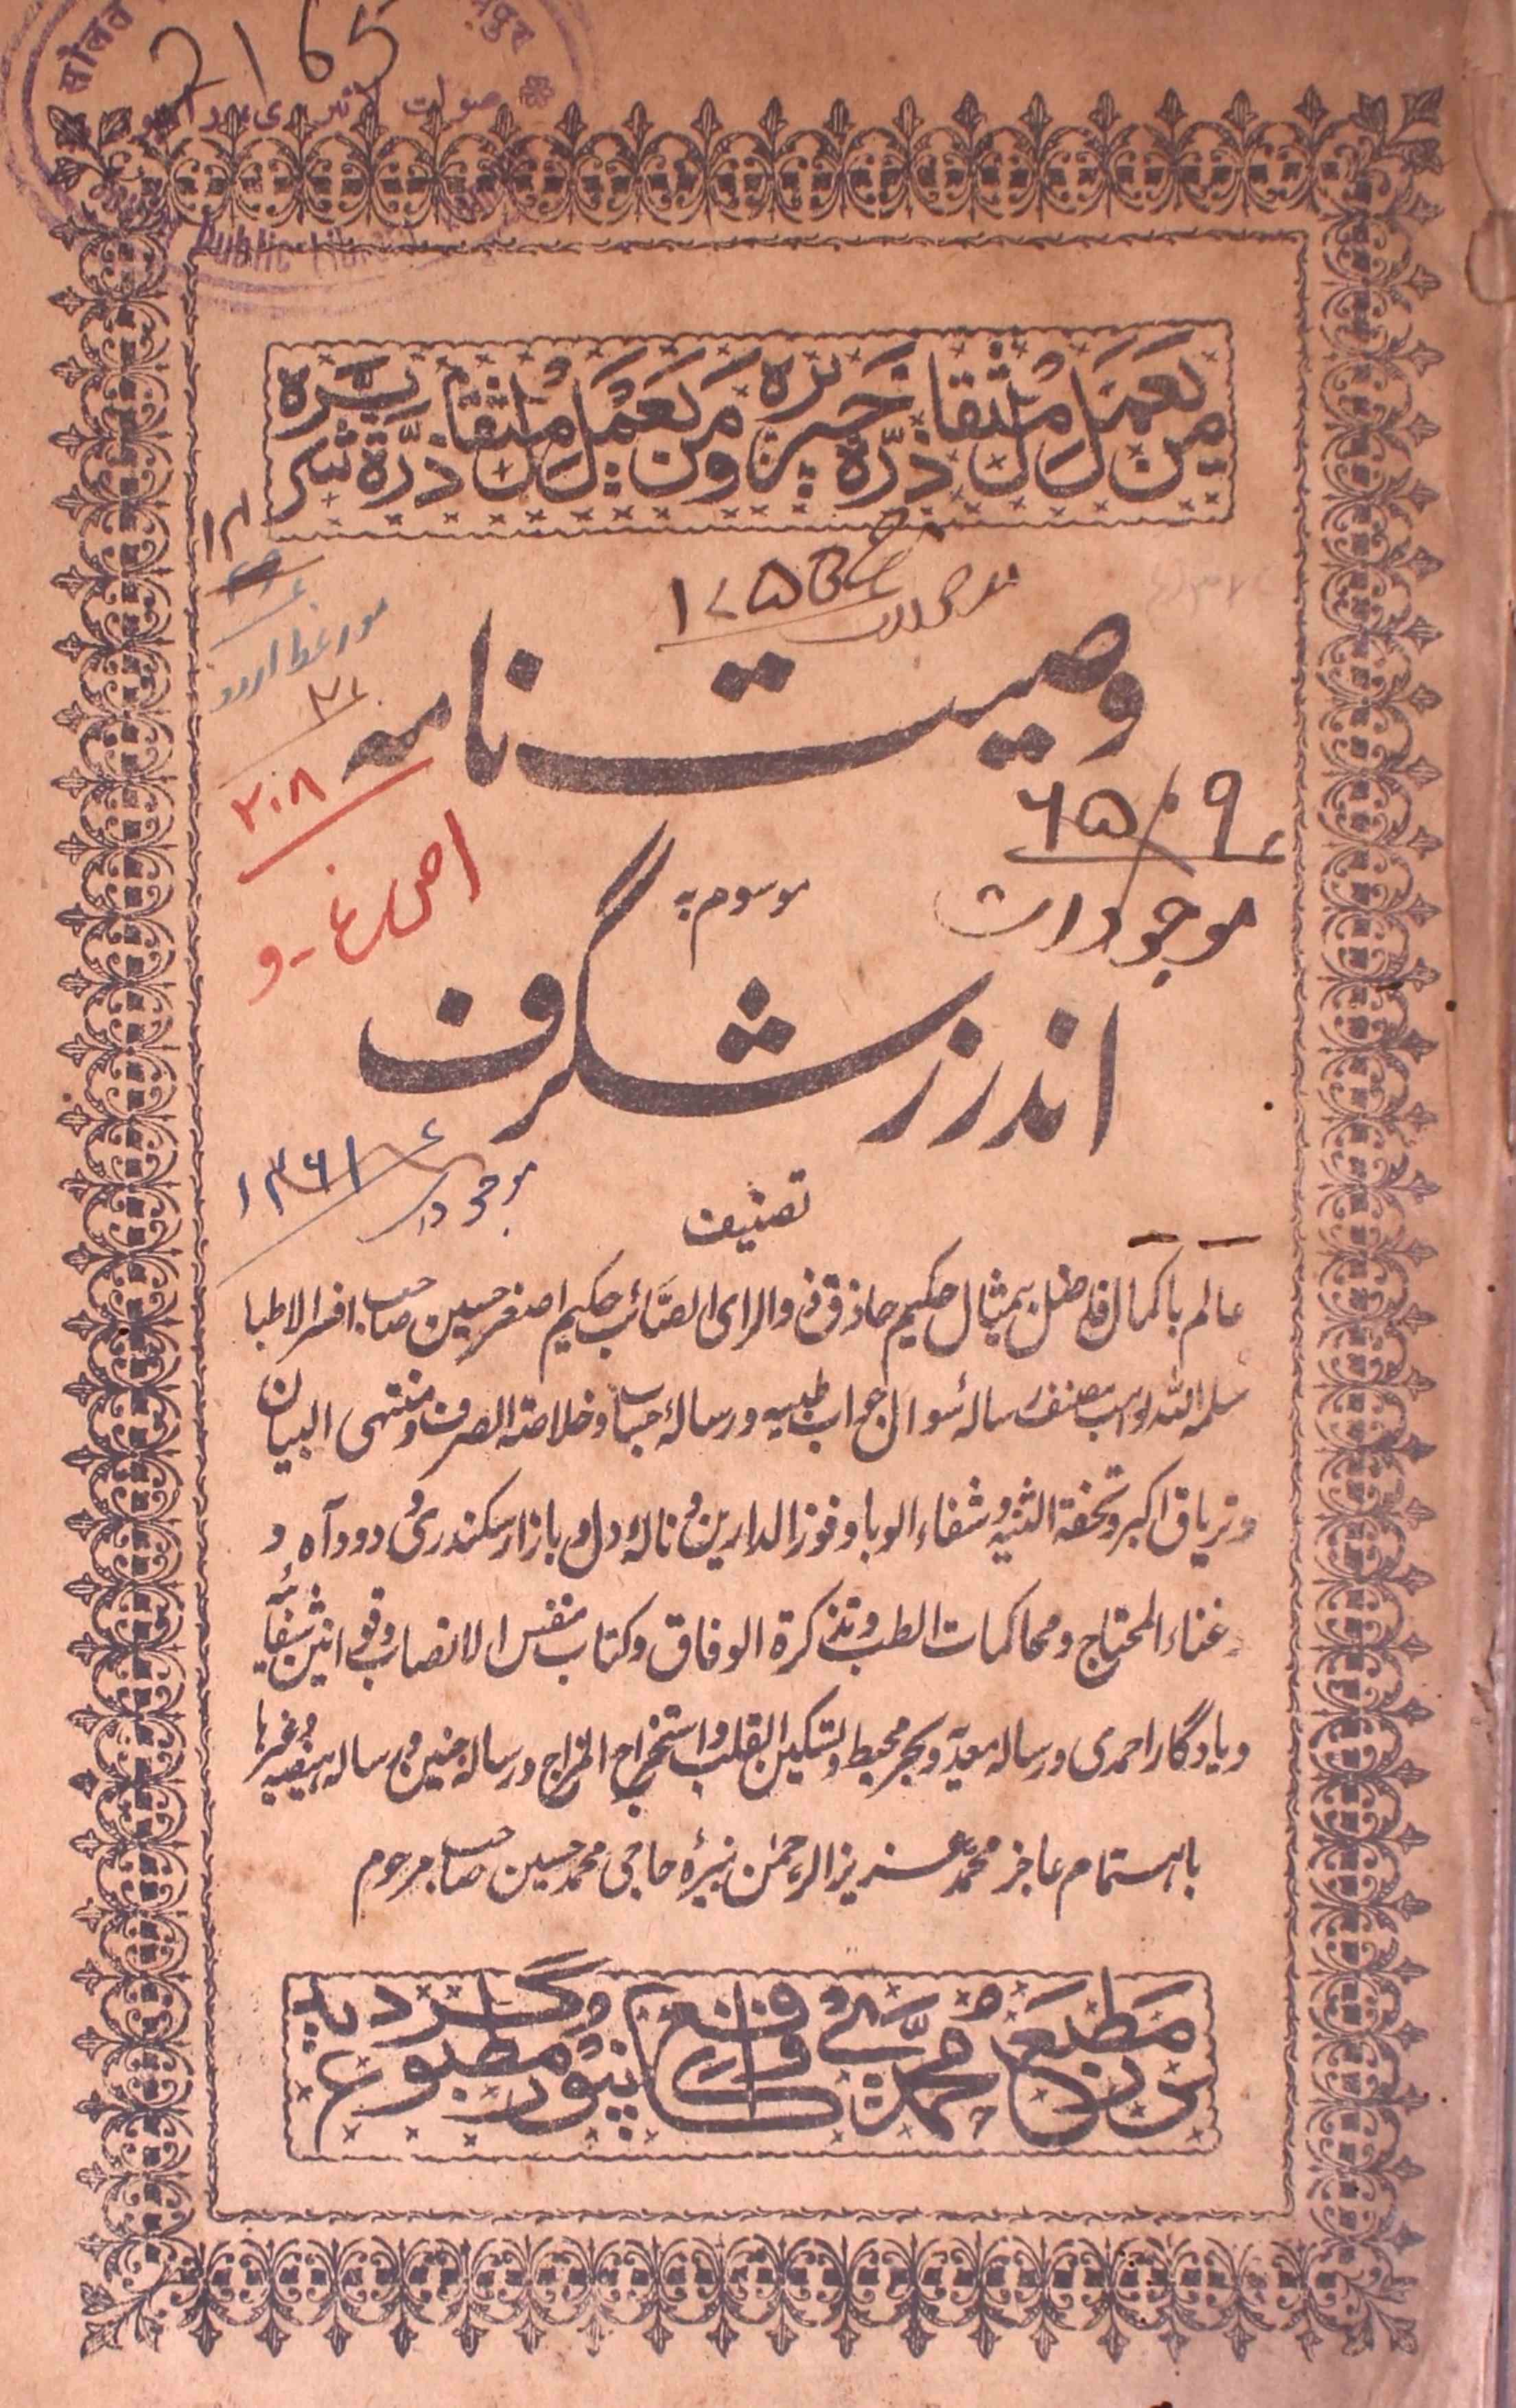 2165
सौलत
صولت لائبریری رامپور
Public Lib
من یعمل مثقال ذرّة خیرا یره ومن یعمل مثقال ذرّة شرا یره
۱۷۵۵
وصیت نامہ
۲۰۸
۶۵۰۹
موجودات
موسوم بہ
اندرز شگرف
۱۳۶۱
موجودات
تصنیف
عالم باکمال فاضل بیمثال حکیم حاذق ذوالرای الصائب حکیم اصغر حسین صاحب افسر الاطبا
سلمہ اللہ الواہب مصنف رسالۂ سوال جواب طبیہ ورسالۂ حساب وخلاصۃ الصرف ومنتہی البیان
وتریاق اکبر وتحفۃ الثنیہ وشفاء الوبا وفوز الدارین ونالۂ دل وبازار سکندری ودودآہ و
غناء المحتاج ومحاکمات الطب وتذکرۃ الوفاق وکتاب منفس الانصاب وقوانین شفائیہ
ویادگار احمدی ورسالہ معدیہ وبحر محیط وتسکین القلب واستخراج المزاج ورسالہ جنین ورسالہ ہیضیہ وغیرہا
باہتمام عاجز محمد عزیز الرحمٰن نبیرۂ حاجی محمد حسین صاحب مرحوم
در مطبع محمدی واقع کانپور مطبوع گردید